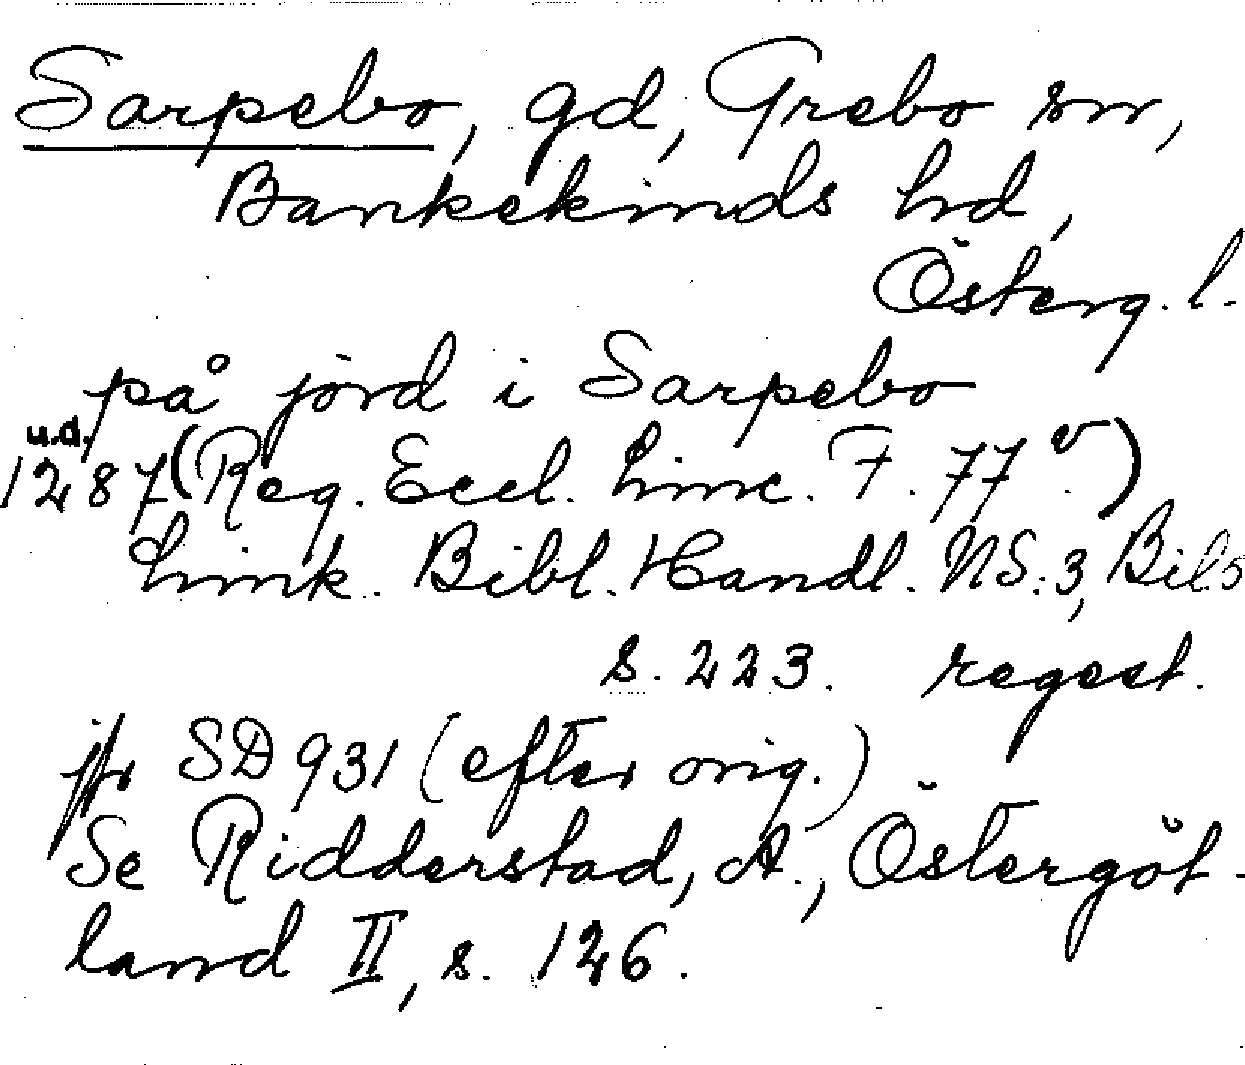 Sarpebo, gd, Grebo sn,
Bankekinds hd,
Österg. l.
på jord i Sarpebo
u.d.
1287 (Reg. Eccl. Linc. F. 77 v)
Link. Bibl. Handl. NS. 3, Bil
s. 223. regest.
jfr SD 931 (efter orig.)
Se Ridderstad, A., Östergöt-
land II, s. 126.